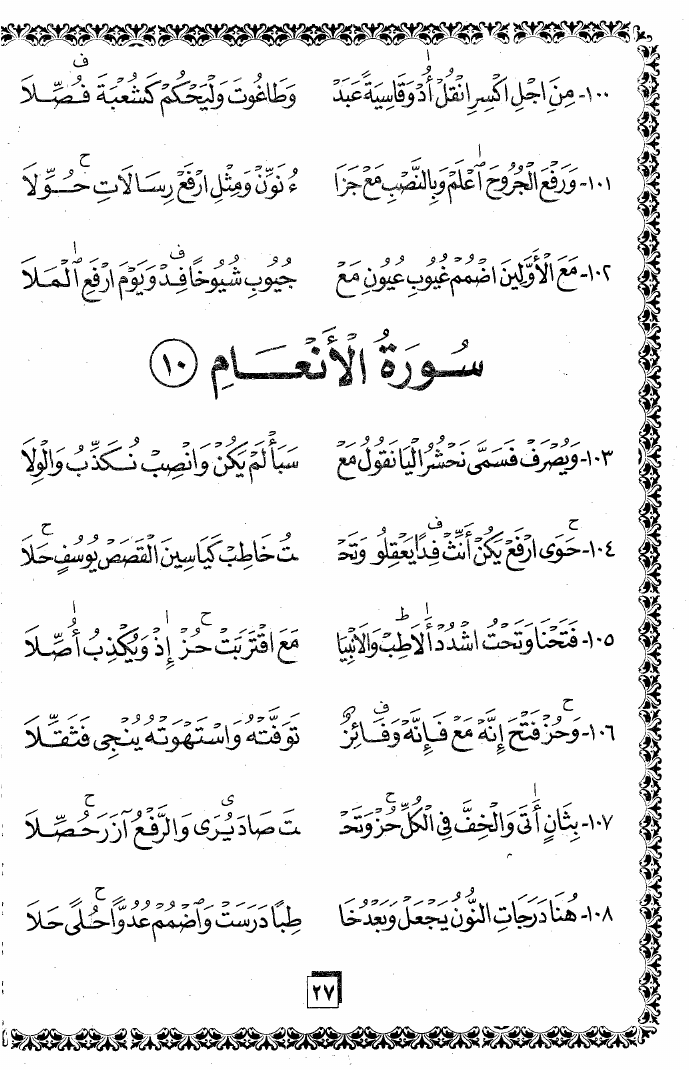 ١٠٠- مِنَ اجْلِ اكْسِرِ انْقُلْ أُدْ وَقَاسِيَةً عَبَدْ وَطَاغُوتَ وَلْيَحْكُمْ كَشُعْبَةَ فُصِّلَا
١٠١- وَرَفْعَ الْجُرُوحَ اَعْلَمْ وَبِالنَّصْبِ مَعْ جَزَا ءُ نَوِّنْ وَمِثْلِ ارْفَعْ رِسَالَاتِ حُوِّلَا
١٠٢- مَعَ الْأَوَّلِينَ اضْمُمْ غُيُوبِ عُيُونِ مَعْ جُيُوبِ شُيُوخًا فِدْ وَيَوْمَ ارْفَعِ الْمَلَا
سُورَةُ الْأَنْعَامِ ١٠
١٠٣- وَيُصْرَفْ فَسَمَّى نَحْشُرُ الْيَا نَقُولُ مَعْ سَبَأْ لَمْ يَكُنْ وَانْصِبْ نُكَذِّبُ وَالْوِلَا
١٠٤- حَوَى ارْفَعْ يَكُنْ أَنِّثْ فِدًا يَعْقِلُو وَتَحْـ ـتُ خَاطِبْ كَيَاسِينَ الْقَصَصْ يُوسُفٍ حَلَا
١٠٥- فَتَحْنَا وَتَحْتُ اشْدُدْ أَلَا طِبْ وَالَانْبِيَا مَعَ اقْتَرَبَتْ حُزْ إِذْ وَيُكْذِبُ أُصِّلَا
١٠٦- وَحُزْ فَتْحَ إِنَّهْ مَعْ فَإِنَّهْ وَفَائِزٌ تَوَفَّتْهُ وَاسْتَهْوَتْهُ يُنْجِي فَثَقِّلَا
١٠٧- بِثَانٍ أَتَى وَالْخِفُّ فِي الْكُلِّ حُزْ وَتَحْـ ـتَ صَادَ يُرَى وَالرَّفْعُ آزَرَ حُصِّلَا
١٠٨- هُنَا دَرَجَاتِ النُّونُ يَجْعَلْ وَبَعْدُ خَا طِبًا دَرَسَتْ وَاضْمُمْ عُدُوًّا حُلًى حَلَا
٢٧